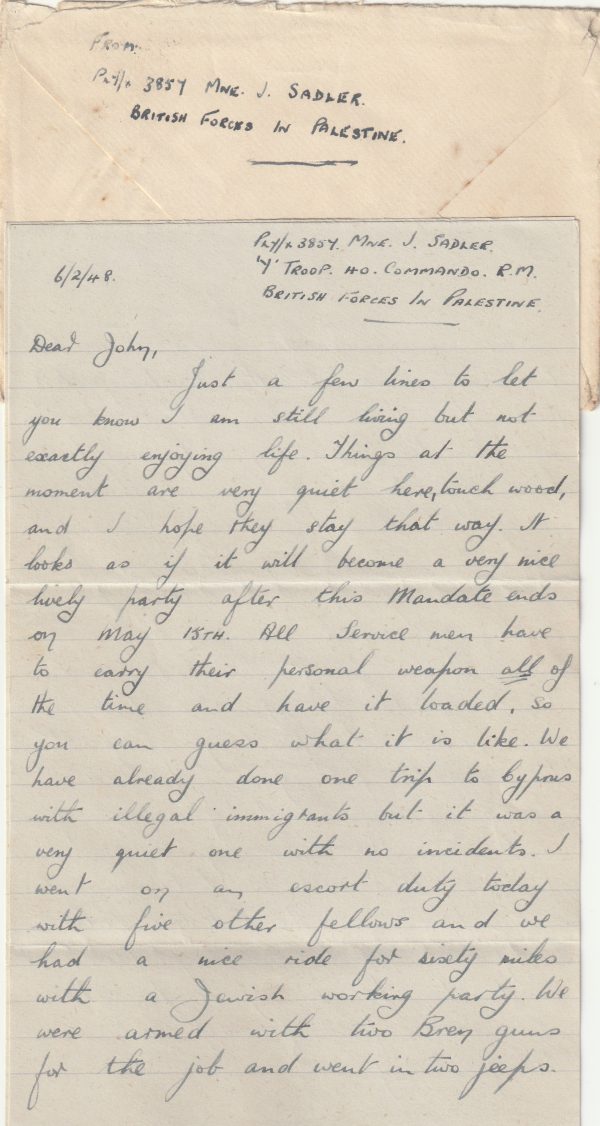 From:
Ply/x 3857 Mne. J. Sadler.
British Forces In Palestine.
6/2/48.
Ply/x 3857. Mne. J. Sadler.
'Y' Troop. 40. Commando. R.M.
British Forces In Palestine.
Dear John,
Just a few lines to let
you know I am still living but not
exactly enjoying life. Things at the
moment are very quiet here, touch wood,
and I hope they stay that way. It
looks as if it will become a very nice
lively party after this Mandate ends
on May 15TH. All Service men have
to carry their personal weapon all of
the time and have it loaded, so
you can guess what it is like. We
have already done one trip to Cyprus
with illegal immigrants but it was a
very quiet one with no incidents. I
went on an escort duty today
with five other fellows and we
had a nice ride for sixty miles
with a Jewish working party. We
were armed with two Bren guns
for the job and went in two jeeps.